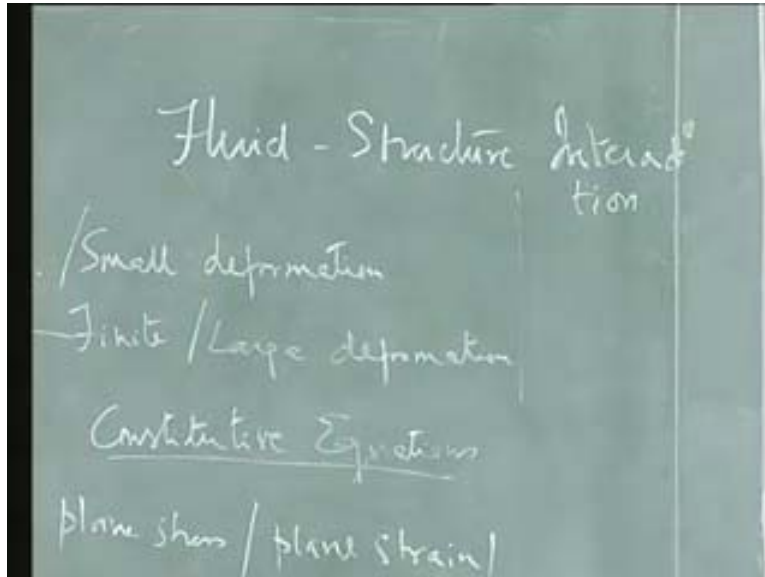 Fluid - Structure Interac
tion
/Small deformation
Finite / Large deformation
Constitutive Equations
plane stress / plane strain /